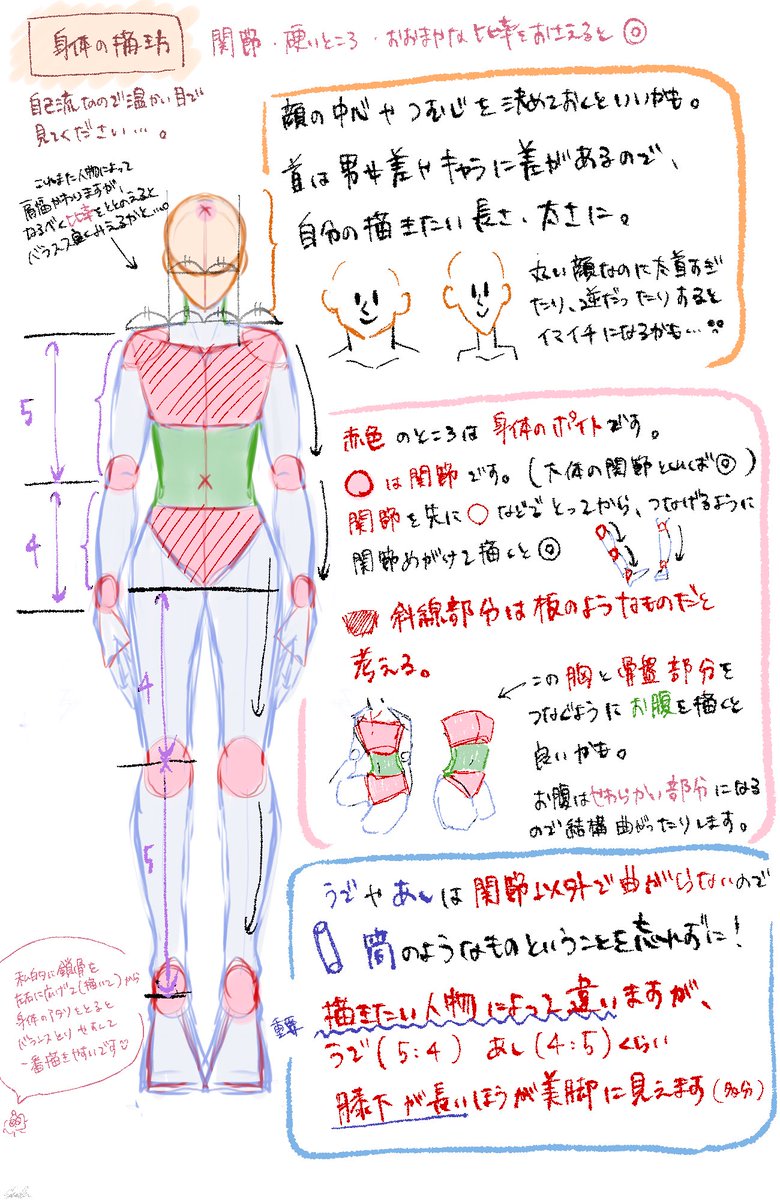 身体の描き方
関節・硬いところ・おおまかな比率をおさえると◎
自己流なので温かい目で
見てください…。
これまた人物によって
肩幅かわりますが、
なるべく比率をととのえると
バランス良く見えるかと…。
顔の中心やつむじを決めておくといいかも。
首は男女差やキャラに差があるので、
自分の描きたい長さ、太さに。
丸い顔なのに太首すぎ
たり、逆だったりすると
イマイチになるかも…
5
4
4
5
赤色のところは身体のポイトです。
は関節です。(大体の関節といれば◎)
関節を先に○などでとってから、つなげるように
関節めがけて描くと◎
斜線部分は板のようなものだと
考える。
この胸と骨盤部分を
つなぐようにお腹を描くと
良いかも。
お腹はやわらかい部分になる
ので結構曲がったりします。
うでやあしは関節以外で曲がらないので
筒のようなものということを忘れずに!
重要
描きたい人物によって違いますが、
うで(5:4) あし(4:5)くらい
膝下が長いほうが美脚に見えます(多分)
私的に鎖骨を
左右に広げて(描いて)から
身体のアタリをとると
バランスとりやすくて
一番描きやすいです